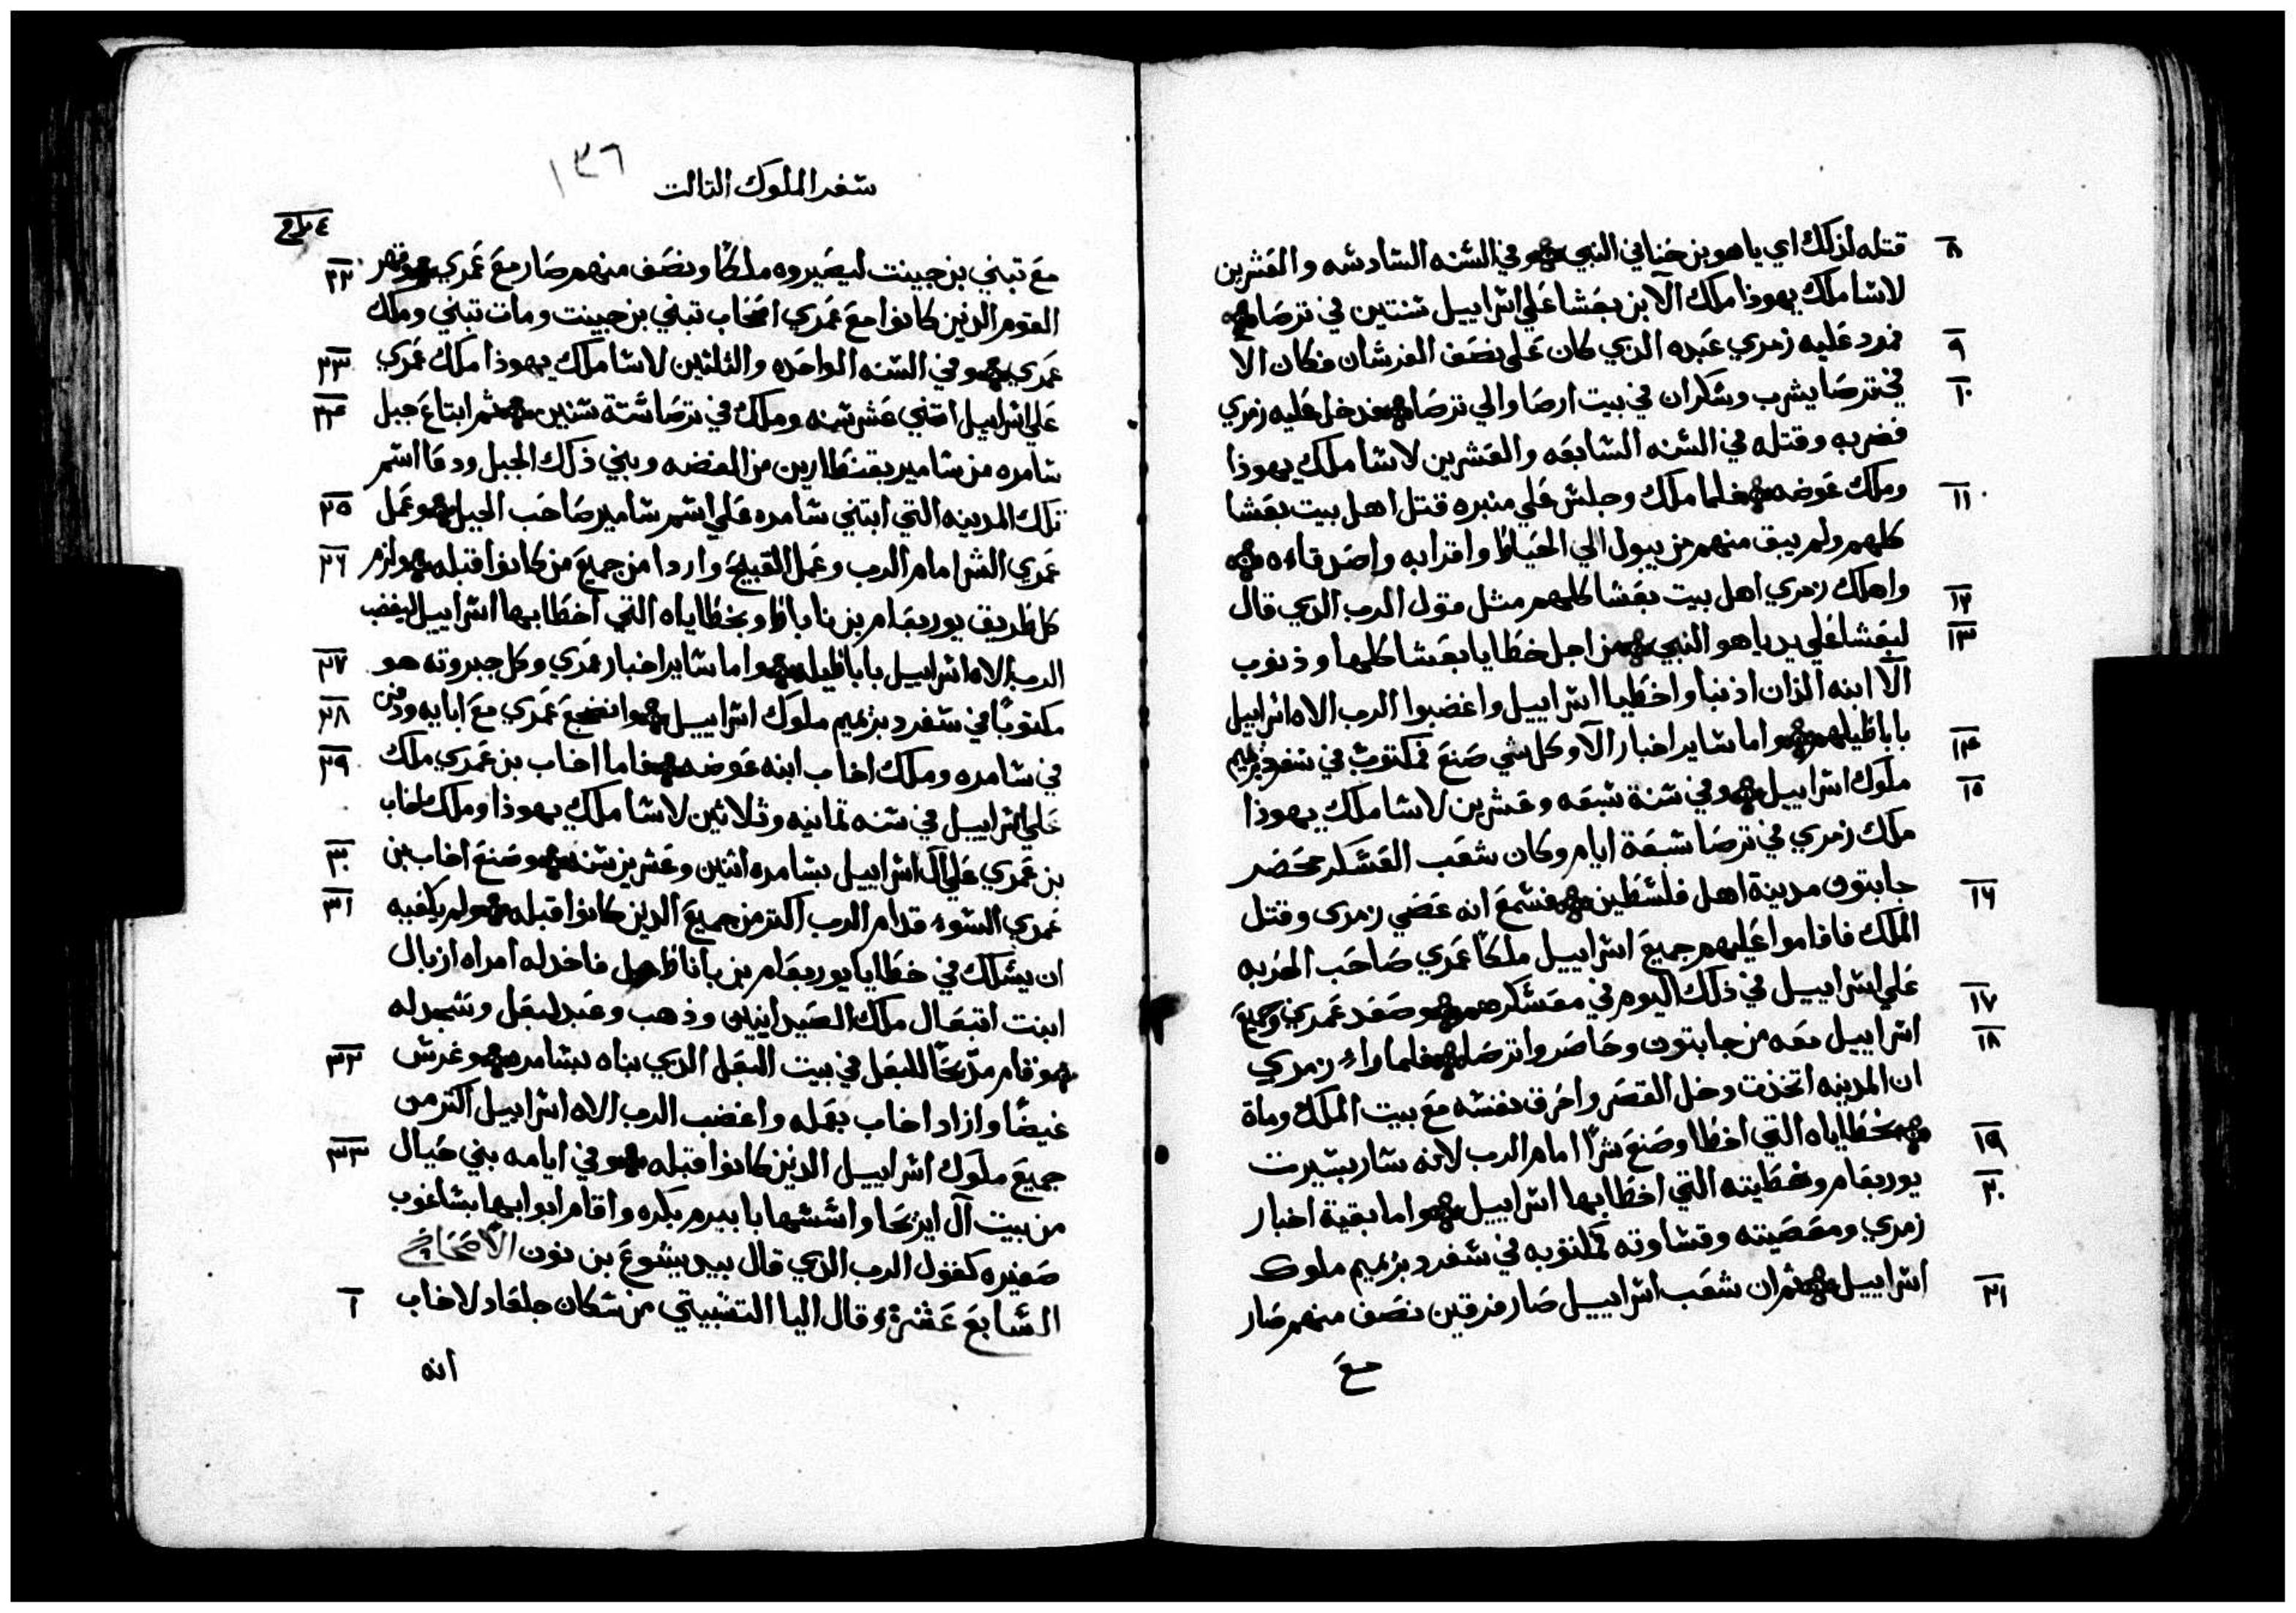 ٨ قتله لذلك اي ياهو بن حناني النبي وفي السنه السادسه والعشرين
لاسا ملك يهوذا ملك الآ بن بعشا علي اسراييل سنتين في ترصا
٩ فمرد عليه زمري عبده الدي كان علي نصف الفرسان فكان الا
١٠ في ترصا يشرب وسكران في بيت ارصا والي ترصا فدخل عليه زمري
فضربه وقتله في السنه السابعه والعشرين لاسا ملك يهوذا
١١ وملك عوضه فلما ملك وجلس علي منبره قتل اهل بيت بعشا
كلهم ولم يبق منهم من يبول الي الحياط واقرابه واصدقاءه
١٢ واهلك زمري اهل بيت بعشا كلهم مثل قول الرب الدي قال
١٣ لبعشا علي يد ياهو النبي من اجل خطايا بعشا كلها وذنوب
الآ ابنه الذان اذنبا واخطيا اسراييل واغضبوا الرب الاه اسراييل
١٤ باباطيلهم واما ساير اخبار الآ وكل شي صنع فمكتوب في سفر دبرهميم
١٥ ملوك اسراييل وفي سنة سبعه وعشرين لاسا ملك يهوذا
ملك زمري في ترصا سبعة ايام وكان شعب العسكر محضر
١٦ جابتون مدينة اهل فلسطين فسمع انه عضي زمري وقتل
الملك فاقاموا عليهم جميع اسراييل ملكا عمري صاحب الحربه
١٧ علي اسراييل في ذلك اليوم في معسكرهم وصعد عمري وجميع
١٨ اسراييل معه من جابتون وحاصروا ترصا فلما راء زمري
ان المدينه اتخذت دخل القصر واحرق نفسه مع بيت الملك ومات
١٩ بخطاياه التي اخطا وصنع شرا امام الرب لانه سار بسيرت
٢٠ يوربعام وخطيته التي اخطا بها اسراييل واما بقية اخبار
زمري ومعصيته وقساوته مكتوبه في سفر دبرهميم ملوك
٢١ اسراييل ثم ان شعب اسراييل صار فرقين نصف منهم صار
مع
١٣٦
سفر الملوك التالت
مع تبني بن جينت ليصيروه ملكا ونصف منهم صار مع عمري وقهر ٢٢
القوم الدنين كانوا مع عمري اصحاب تبني بن جينت ومات تبني وملك
عمري وفي السنه الواحده والثلثين لاسا ملك يهوذا ملك عمري ٢٣
علي اسراييل اتني عشر سنه وملك في ترصا ستة سنين ثم ابتاع جبل ٢٤
سامره من سامير بقنطارين من الفضه وبني ذلك الجبل ودعا اسم
تلك المدينه التي ابتني سامره علي اسم سامير صاحب الجبل وعمل ٢٥
عمري الشر امام الرب وعمل القبيح واردا من جميع من كانوا قبله ولزم ٢٦
كل طريق يوربعام بن ناباط وبخطاياه التي اخطا بها اسراييل ليغضب
الرب الاه اسراييل باباطيله واما ساير اخبار عمري وكل جبروته هو ٢٧
مكتوبا في سفر دبرهميم ملوك اسراييل وانضجع عمري مع ابايه ودفن ٢٨
في سامره وملك اخاب ابنه عوضه فاما اخاب بن عمري ملك ٢٩
علي اسراييل في سنه تمانيه وثلاثين لاسا ملك يهوذا وملك اخاب
بن عمري علي آل اسراييل بسامره اثنين وعشرين سنه وصنع اخاب بن ٣٠
عمري السوء قدام الرب اكتر من جميع الدين كانوا قبله ولم يكفيه ٣١
ان يسلك في خطايا يوربعام بن ناباط فاخد له امراه ازبال
ابنت اتبعال ملك الصيدانيين وذهب وعبد لبعل وسجد له
وقام مذبحا للبعل في بيت البعل الدي بناه بسامره وغرس ٣٢
غيضا وازاد اخاب بعمله واغضب الرب الاه اسراييل اكتر من
جميع ملوك اسراييل الدنين كانوا قبله وفي ايامه بني حيال ٣٣
من بيت آل ايريحا واسسها بابيرم بكره واقام ابوابها بساغوب
صغيره كقول الرب الدي قال بيد يشوع بن نون الاصحاح
السابع عشر وقال اليا التسبيتي من سكان جلعاد لاخاب ١
انه